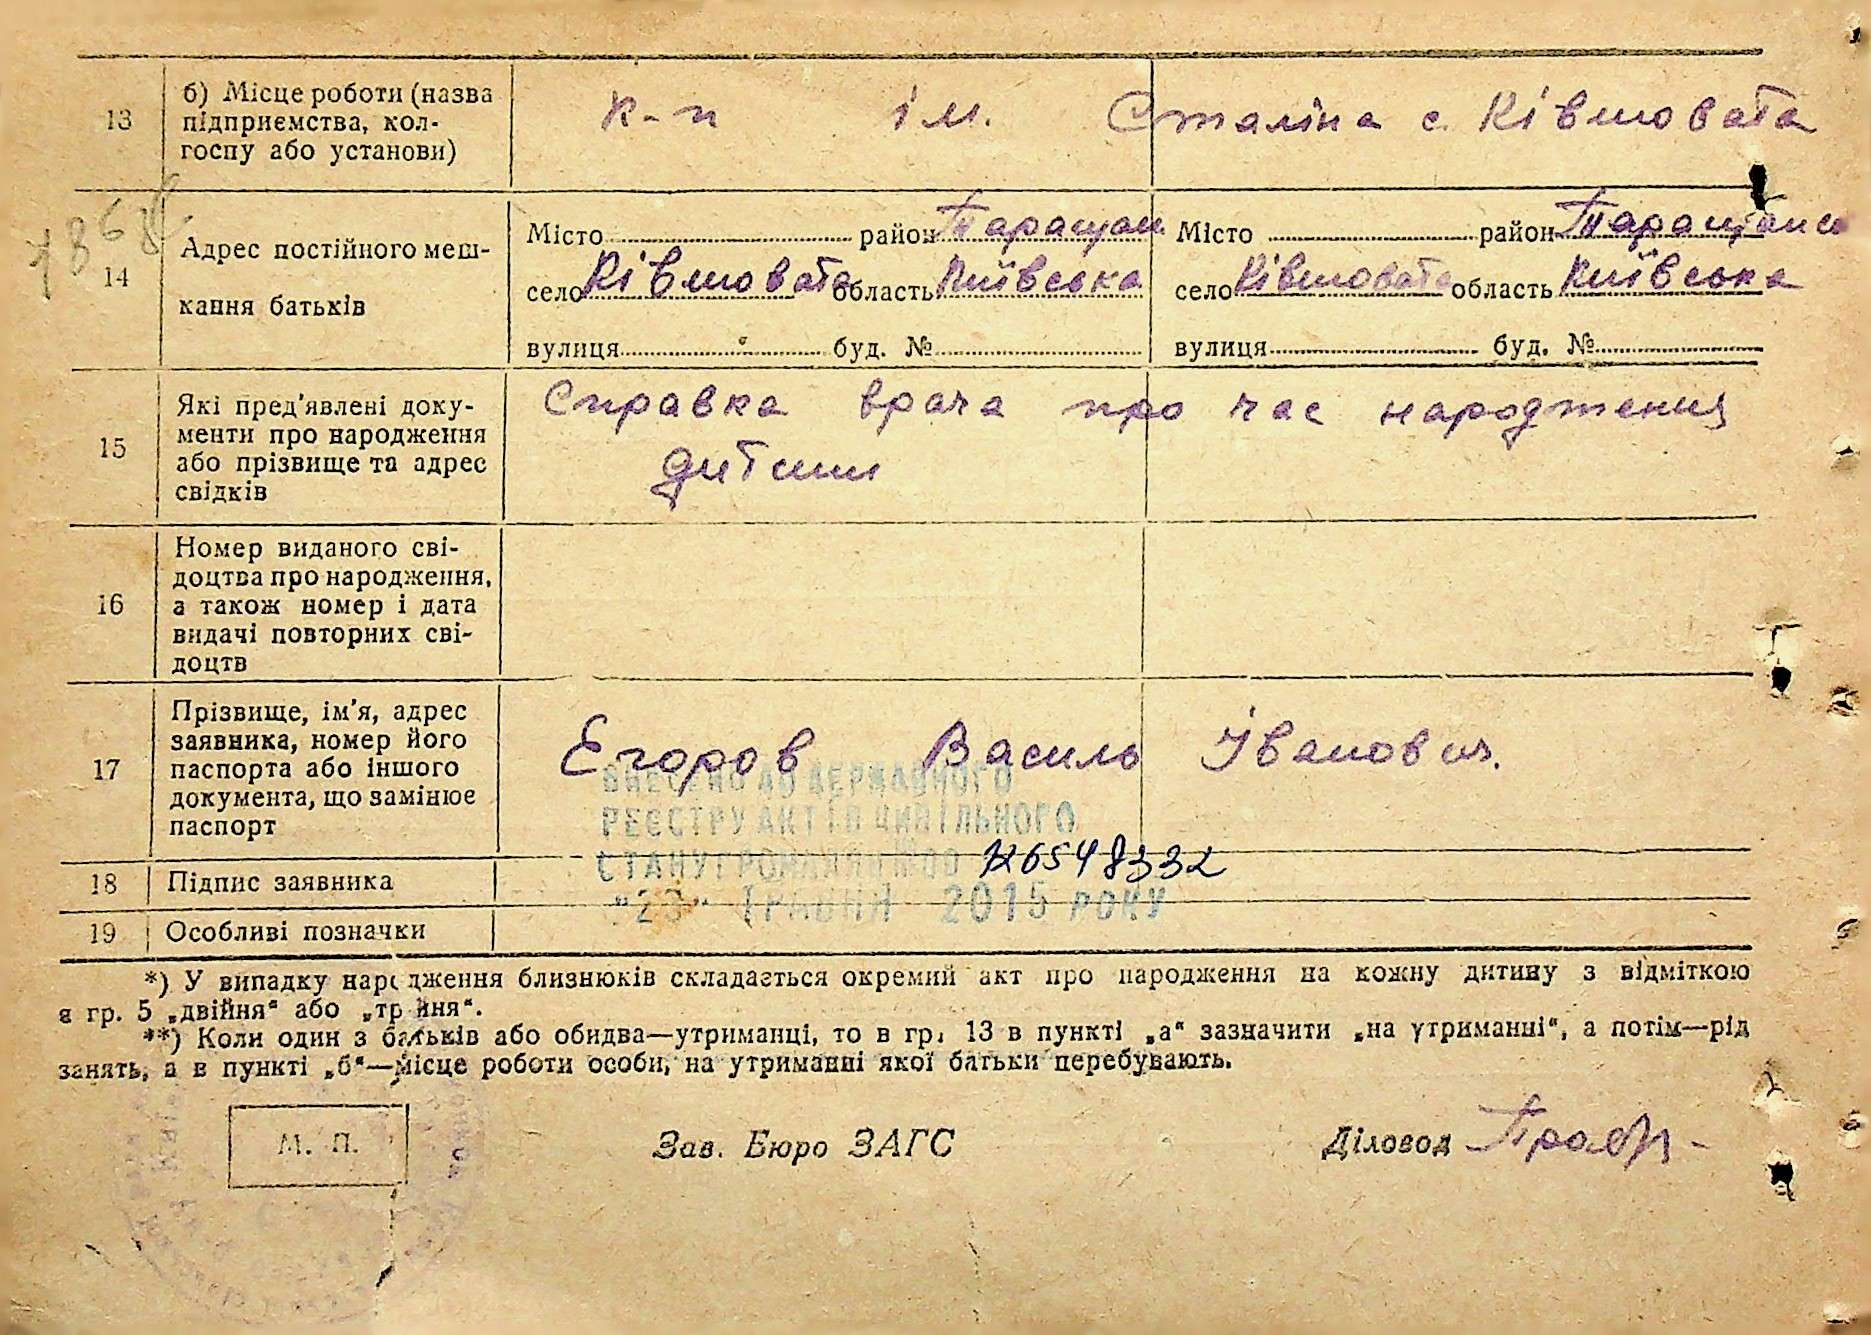 13
б) Місце роботи (назва
підприємства, кол-
госпу або установи)
к-п ім. Сталіна с. Ківшовата
14
Адрес постійного меш-
кання батьків
Місто район Таращан Місто район Таращанськ
село Ківшовата область Київська село Ківшовата область Київська
вулиця буд. № вулиця буд. №
15
Які пред'явлені доку-
менти про народження
або прізвище та адрес
свідків
Справка врача про час народження
дитини
16
Номер виданого сві-
доцтва про народження,
а також номер і дата
видачі повторних сві-
доцтв
17
Прізвище, ім'я, адрес
заявника, номер його
паспорта або іншого
документа, що замінює
паспорт
Егоров Василь Іванович.
ВНЕСЕНО ДО ДЕРЖАВНОГО
РЕЄСТРУ АКТІВ ЦИВІЛЬНОГО
СТАНУ ГРОМАДЯН №00
"23" ТРАВНЯ 2015 РОКУ
18 Підпис заявника
19 Особливі позначки
*) У випадку народження близнюків складається окремий акт про народження на кожну дитину з відміткою
в гр. 5 „двійня“ або „трійня“.
**) Коли один з батьків або обидва—утриманці, то в гр. 13 в пункті „а“ зазначити „на утриманні“, а потім—рід
занять, а в пункті „б“—місце роботи особи, на утриманні якої батьки перебувають.
М. П. Зав. Бюро ЗАГС Діловод